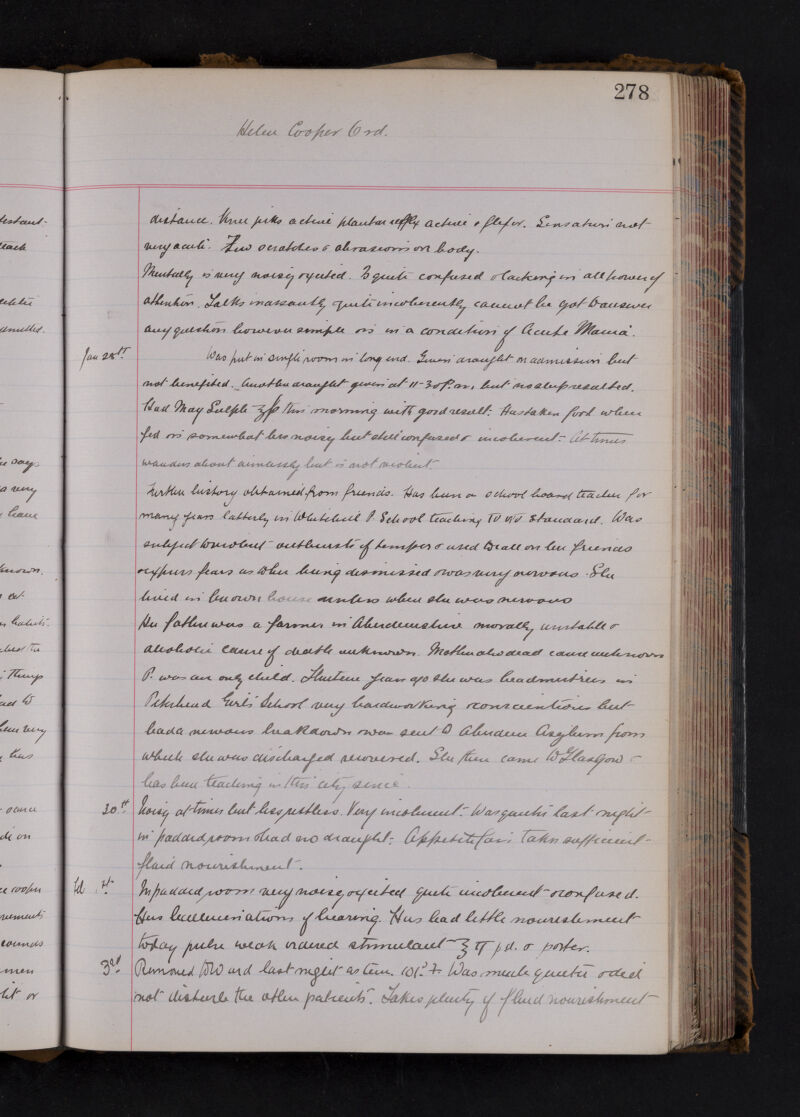 278
Helen Cooper Ord.
distance. Knee jerks active plantar reflex active & flexor. Sensation not
very acute. Few scratches & abrasions on body.
Mentally is very noisy & excited. Is quite confused & lacking in all power of
attention. Talks incessantly quite incoherently cannot be got to answer
any question however simple & is in a condition of Acute Mania.
Jan 28th. Was put in single room in long ward. Given draught on admission but
not benefited. Another draught given at 11-30 P.m, but no sleep resulted.
Had Mag Sulph this morning with good result. Has taken food when
fed & is somewhat less noisy but still confused & incoherent. At times
wanders about aimlessly but is not violent
Further history obtained from friends. Has been a school board teacher for
many years latterly in Whitehill P. School teaching IV & V Standard. Was
subject to violent outbursts of temper & used to call on her friends
& express fears as to her being dismissed & was very nervous. She
lived in her own house unless when she was nervous
Her father was a farmer in Aberdeenshire morally unstable &
alcoholic cause of death unknown. Mother also dead cause unknown
P. was an only child. years ago she was headmistress in
Peterhead Girls' School very hardworking & conscientious but
had a nervous breakdown & was sent to Aberdeen Asylum from
which she was discharged recovered. She then came to Glasgow &
has been teaching in this city since.
30th. Noisy at times but less restless. Very incoherent. Was quieter last night
in padded room & had no draught. Appetite fair takes sufficient
fluid nourishment.
In padded room very noisy & excited quite incoherent & confused.
Has hallucinations of hearing. Has had little nourishment
today pulse weak ordered stimulant ℥ II p.d. & porter.
3rd. Removed to W ard last night as tem. 101.? Was much quieter & did
not disturb the other patients. Takes plenty of fluid nourishment